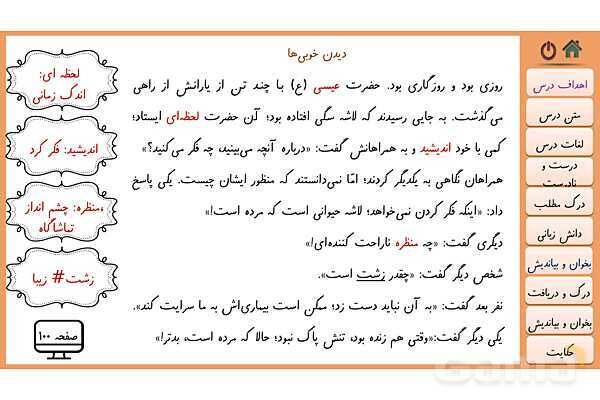 دیدن خوبی‌ها
روزی بود و روزگاری بود. حضرت عیسی (ع) با چند تن از یارانش از راهی
می‌گذشت. به جایی رسیدند که لاشه سگی افتاده بود؛ آن حضرت لحظه‌ای ایستاد؛
کمی با خود اندیشید و به همراهانش گفت: «درباره آنچه می‌بینید، چه فکر می‌کنید؟»
همراهان نگاهی به یکدیگر کردند؛ امّا نمی‌دانستند که منظور ایشان چیست. یکی پاسخ
داد: «اینکه فکر کردن نمی‌خواهد؛ لاشه حیوانی است که مرده است!»
دیگری گفت: «چه منظره ناراحت کننده‌ای!»
شخص دیگر گفت: «چقدر زشت است».
نفر بعد گفت: «به آن نباید دست زد؛ ممکن است بیماری‌اش به ما سرایت کند».
یکی دیگر گفت:«وقتی هم زنده بود، تنش پاک نبود؛ حالا که مرده است، بدتر!»
لحظه ای:
اندک زمانی
اندیشید: فکر کرد
،منظره: چشم انداز
تماشاگاه
زشت# زیبا
صفحه ۱۰۰
اهداف درس
متن درس
لغات درس
درست و
نادرست
درک مطلب
دانش زبانی
بخوان و بیاندیش
درک و دریافت
بخوان و بیاندیش
حکایت
Gama